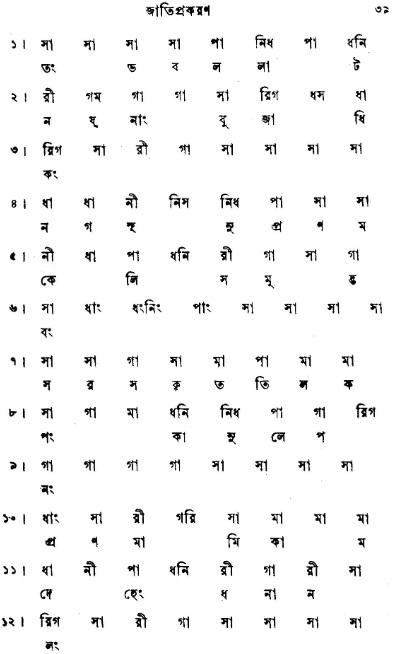 জাতিপ্রকরণ ৩৯
১। সা সা সা সা পা নিধ পা ধনি
তং ভ ব ল লা ট
২। রী গম গা গা সা রিগ ধস ধা
ন য্ নাং বু জা ধি
৩। রিগ সা রী গা সা সা সা সা
কং
৪। ধা ধা নী নিস নিধ পা সা সা
ন গ সূ প্র ণ ম
৫। নী ধা পা ধনি রী গা সা গা
কে লি স মু
৬। সা ধাং ধংনিং পাং সা সা সা সা
বং
৭। সা সা গা সা মা পা মা মা
স র স কৃ ত তি ল ক
৮। সা গা মা ধনি নিধ পা গা রিগ
পং কা নু লে প
৯। গা গা গা গা সা সা সা সা
নং
১০। ধাং সা রী গরি সা মা মা মা
প্র ণ মা মি কা ম
১১। ধা নী পা ধনি রী গা রী সা
দে হেং ধ না ন
১২। রিগ সা রী গা সা সা সা সা
লং